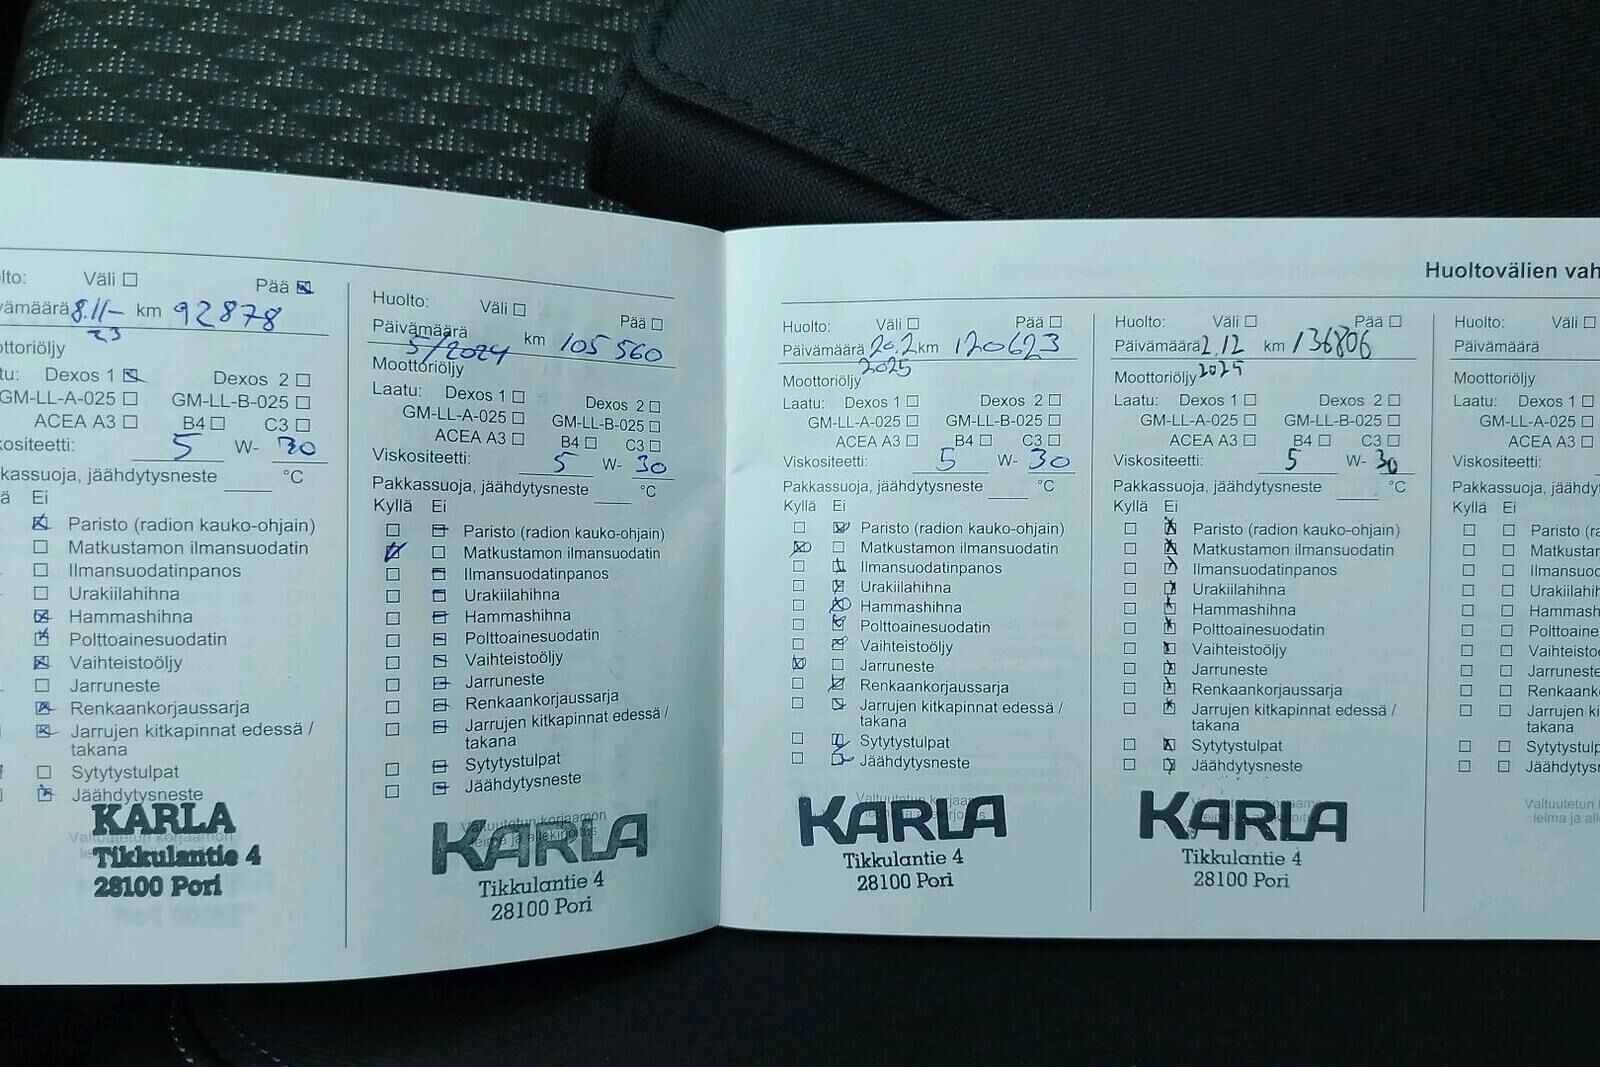 lto: Väli Pää
vämäärä 8.11- km 92878
23
ottoriöljy
tu: Dexos 1 Dexos 2
GM-LL-A-025 GM-LL-B-025
ACEA A3 B4 C3
kositeetti: 5 W- 30
kkassuoja, jäähdytysneste °C
ä Ei
Paristo (radion kauko-ohjain)
Matkustamon ilmansuodatin
Ilmansuodatinpanos
Urakiilahihna
Hammashihna
Polttoainesuodatin
Vaihteistoöljy
Jarruneste
Renkaankorjaussarja
Jarrujen kitkapinnat edessä /
takana
Sytytystulpat
Jäähdytysneste
KARLA
Tikkulantie 4
28100 Pori
Huolto: Väli Pää
Päivämäärä km 105 560
5/2024
Moottoriöljy
Laatu: Dexos 1 Dexos 2
GM-LL-A-025 GM-LL-B-025
ACEA A3 B4 C3
Viskositeetti: 5 W- 30
Pakkassuoja, jäähdytysneste °C
Kyllä Ei
Paristo (radion kauko-ohjain)
Matkustamon ilmansuodatin
Ilmansuodatinpanos
Urakiilahihna
Hammashihna
Polttoainesuodatin
Vaihteistoöljy
Jarruneste
Renkaankorjaussarja
Jarrujen kitkapinnat edessä /
takana
Sytytystulpat
Jäähdytysneste
Valtuutetun korjaamon
leima ja allekirjoitus
KARLA
Tikkulantie 4
28100 Pori
Huoltovälien vah
Huolto: Väli Pää
Päivämäärä 20.2 km 120623
2025
Moottoriöljy
Laatu: Dexos 1 Dexos 2
GM-LL-A-025 GM-LL-B-025
ACEA A3 B4 C3
Viskositeetti: 5 W- 30
Pakkassuoja, jäähdytysneste °C
Kyllä Ei
Paristo (radion kauko-ohjain)
Matkustamon ilmansuodatin
Ilmansuodatinpanos
Urakiilahihna
Hammashihna
Polttoainesuodatin
Vaihteistoöljy
Jarruneste
Renkaankorjaussarja
Jarrujen kitkapinnat edessä /
takana
Sytytystulpat
Jäähdytysneste
KARLA
Tikkulantie 4
28100 Pori
Huolto: Väli Pää
Päivämäärä 2.12 km 136806
2025
Moottoriöljy
Laatu: Dexos 1 Dexos 2
GM-LL-A-025 GM-LL-B-025
ACEA A3 B4 C3
Viskositeetti: 5 W- 30
Pakkassuoja, jäähdytysneste °C
Kyllä Ei
Paristo (radion kauko-ohjain)
Matkustamon ilmansuodatin
Ilmansuodatinpanos
Urakiilahihna
Hammashihna
Polttoainesuodatin
Vaihteistoöljy
Jarruneste
Renkaankorjaussarja
Jarrujen kitkapinnat edessä /
takana
Sytytystulpat
Jäähdytysneste
KARLA
Tikkulantie 4
28100 Pori
Huolto: Väli
Päivämäärä
Moottoriöljy
Laatu: Dexos 1
GM-LL-A-025
ACEA A3
Viskositeetti:
Pakkassuoja, jäähdyty
Kyllä Ei
Paristo (ra
Matkustam
Ilmansuod
Urakiilahih
Hammash
Polttoaine
Vaihteisto
Jarruneste
Renkaank
Jarrujen ki
takana
Sytytystulp
Jäähdytys
Valtuutetun
leima ja all